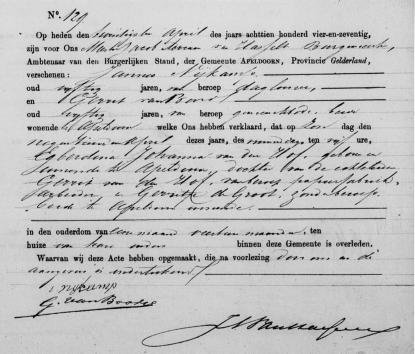 No. 129
Op heden den twintigsten April des jaars achttien honderd vier-en-zeventig,
zijn voor Ons van Hasselt Burgemeester,
Ambtenaar van den Burgerlijken Stand, der Gemeente APELDOORN, Provincie Gelderland,
verschenen: Jannes Nijkamp
oud vijftig jaren, van beroep daglooner,
en Gerrit van Boove
oud vijftig jaren, van beroep gemeentebode, beiden
wonende te Apeldoorn welke Ons hebben verklaard, dat op Zon dag den
negentienden April dezes jaars, des namiddags ten vijf ure,
Egberdina Johanna van der Hof, geboren en
wonende te Apeldoorn, dochter van de echtelieden
Gerrit van der Hof, papierfabriek-
arbeider en Gerritje de Groot, zonder beroep,
beide te Apeldoorn
in den ouderdom van eene maand ten
huize van hare ouders binnen deze Gemeente is overleden.
Waarvan wij deze Acte hebben opgemaakt, die na voorlezing door ons en de
aangevers is onderteekend
J nijkamp
G. van Boove